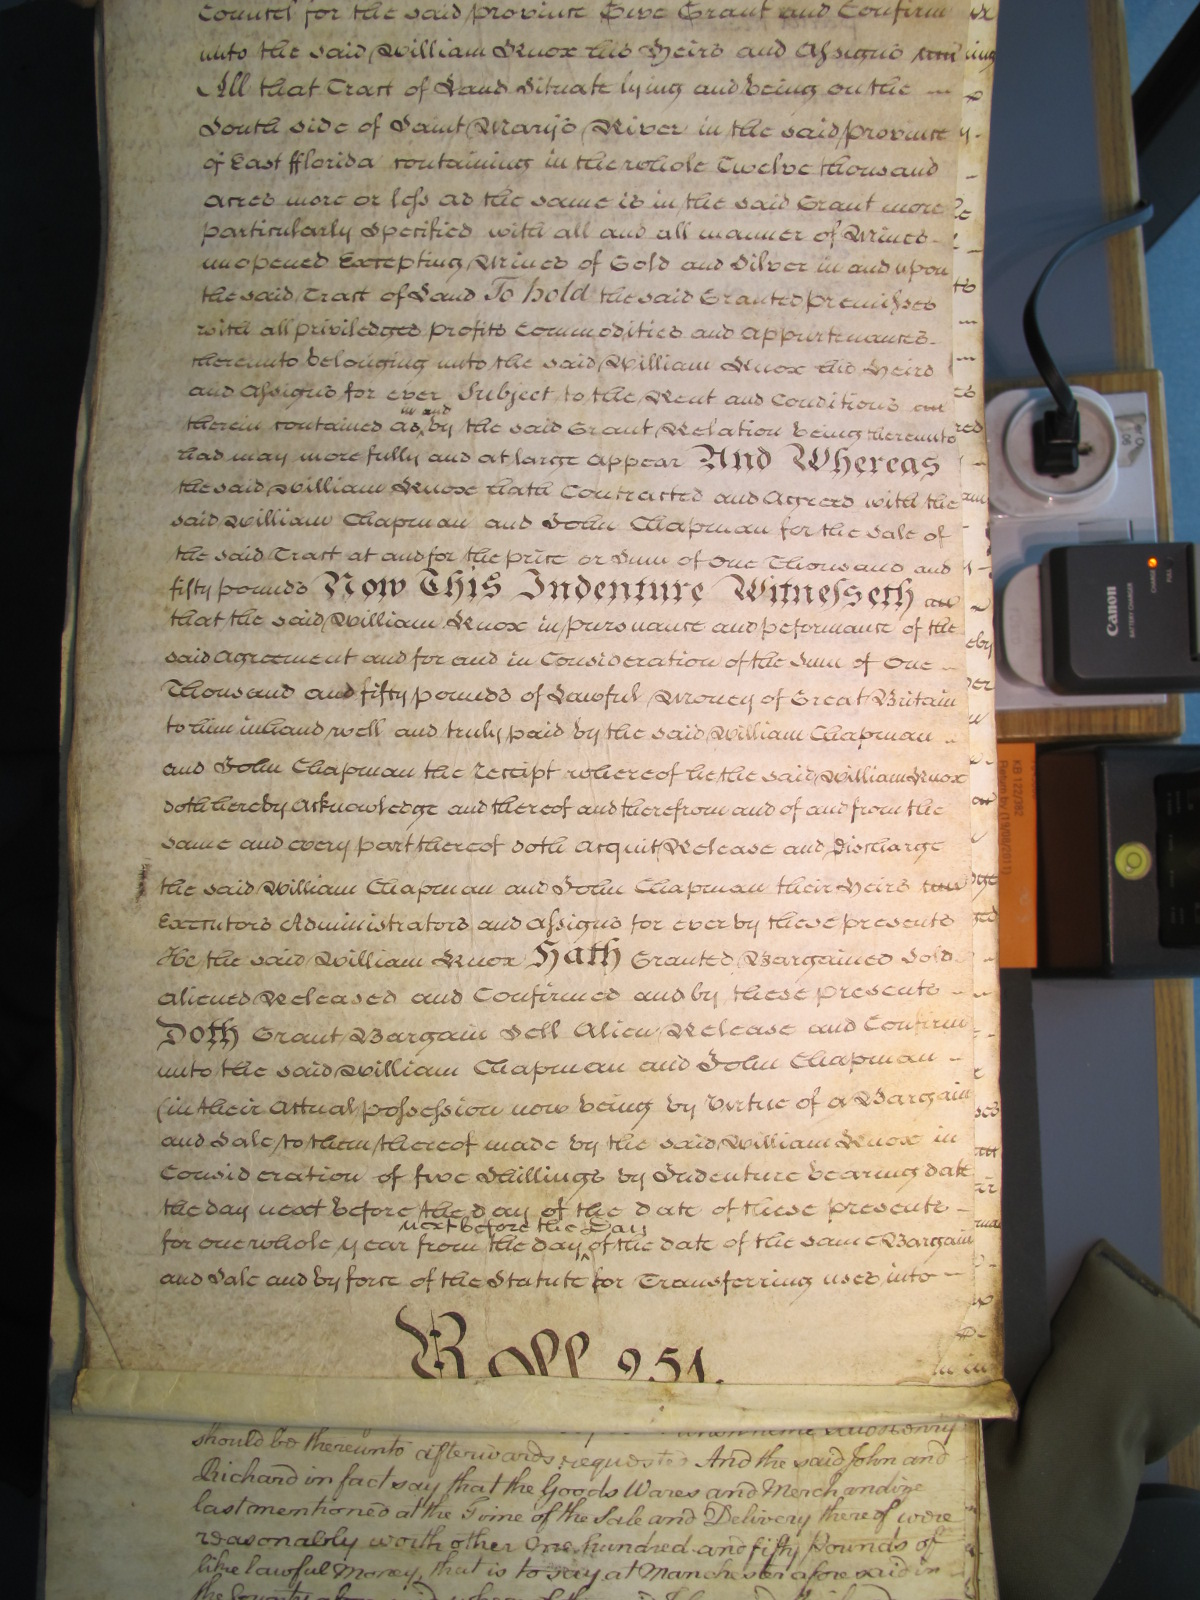 Council for the said province Give Grant and Confirm
unto the said William Knox his Heirs and Assigns
All that Tract of Land Situate lying and being on the
South side of Saint Marys River in the said province
of East fflorida containing in the whole Twelve thousand
acres more or less as the same is in the said Grant more
particularly Specified with all and all manner of Mines
unopened Excepting Mines of Gold and Silver in and upon
the said Tract of Land To hold the said Granted premisses
with all priviledges profits Commodities and appurtenances
thereunto belonging unto the said William Knox his Heirs
and Assigns for ever Subject to the Rent and Conditions
in and
therein contained as by the said Grant Relation being thereunto
had may more fully and at large appear And Whereas
the said William Knox hath Contracted and Agreed with the
said William Chapman and John Chapman for the Sale of
the said Tract at and for the price or Sum of One Thousand and
fifty pounds Now This Indenture Witnesseth
that the said William Knox in pursuance and peformance of the
said Agreement and for and in Consideration of the Sum of One
Thousand and fifty pounds of Lawful Money of Great Britain
to him in hand well and truly paid by the said William Chapman
and John Chapman the receipt whereof he the said William Knox
doth hereby Acknowledge and thereof and therefrom and of and from the
same and every part thereof doth acquit Release and Discharge
the said William Chapman and John Chapman their Heirs
Executors Administrators and Assigns for ever by these presents
He the said William Knox Hath Granted Bargained Sold
aliened Released and Confirmed and by these presents
Doth Grant Bargain Sell Alien Release and Confirm
unto the said William Chapman and John Chapman
(in their Actual possession now being by Virtue of a Bargain
and Sale to them thereof made by the said William Knox in
Consideration of five Shillings by Indenture bearing date
the day next before the day of the date of these presents
next before the Day
for one whole year from the day of the date of the same Bargain
and Sale and by force of the Statute for Transferring uses into
Roll 951.
should be thereunto afterwards requested And the said John and
Richard in fact say that the Goods Wares and Merchandize
last mentioned at the Time of the Sale and Delivery thereof were
reasonably worth other One hundred and fifty Pounds of
like lawful Money, that is to say at Manchester aforesaid in
Canon
BATTERY CHARGER
CHARGE
FULL
KB 122/382